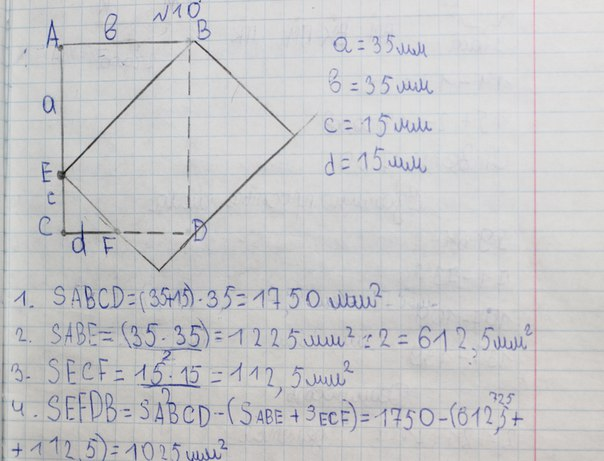 №10
A в B
a
E
c
C d F D
a = 35мм
в = 35мм
c = 15мм
d = 15мм
1. SABCD = (35+15) · 35 = 1750 мм²
2. SABE = (35 · 35) = 1225мм² : 2 = 612,5мм²
2
3. SECF = 15 · 15 = 112,5мм²
2
725
4. SEFDB = SABCD - (SABE + SECF) = 1750 - (612,5 +
+ 112,5) = 1025мм²